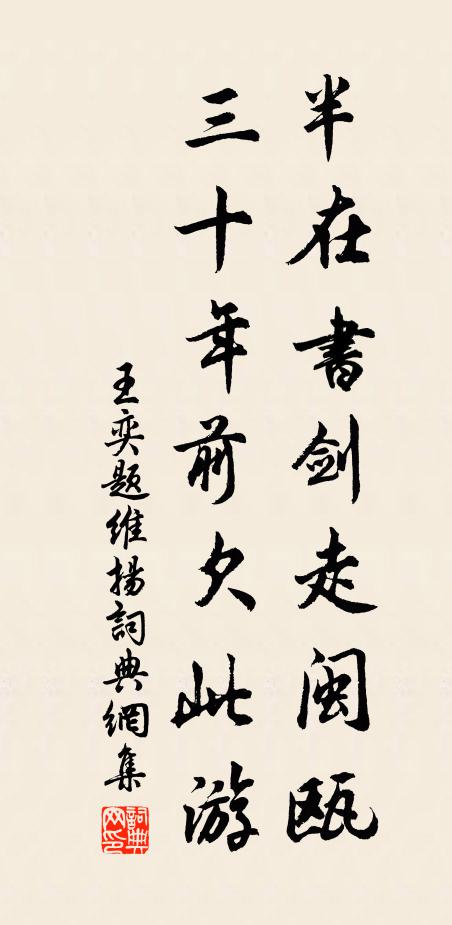 半在書剑走闽瓯
三十年前欠此游
王奕题维揚詞典網集
詞典网印